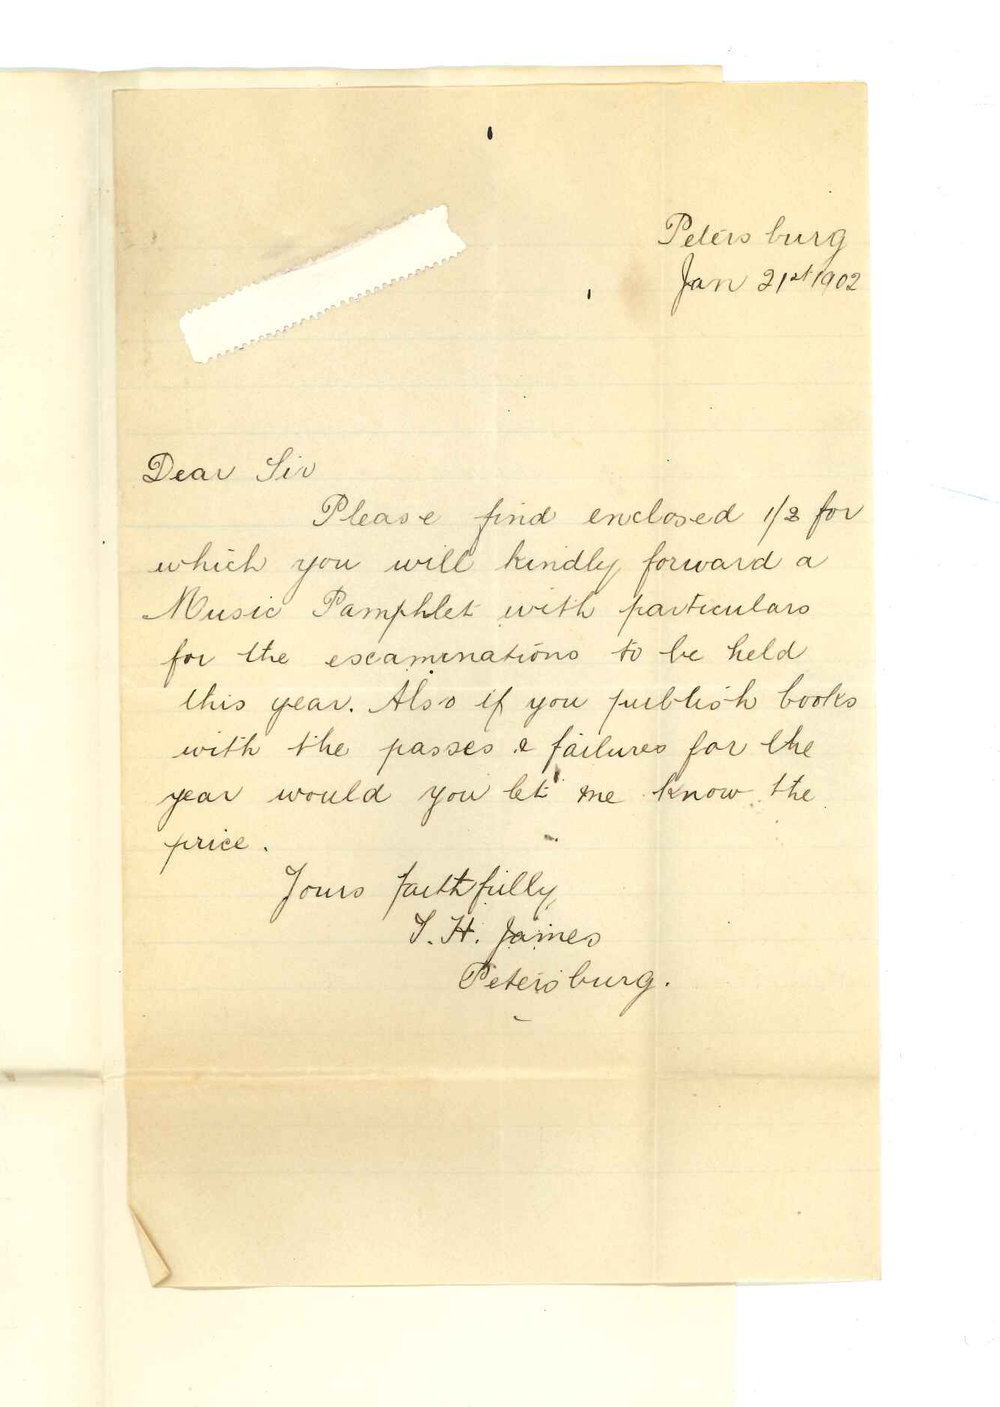 Petersburg
Jan 21st 1902
Dear Sir
Please find enclosed 1/2 for
which you will kindly forward a
Music Pamphlet with particulars
for the escaminations to be held
this year. Also if you publish books
with the passes & failures for the
year would you let me know the
price.
Yours faithfully
T. H. James
Petersburg.